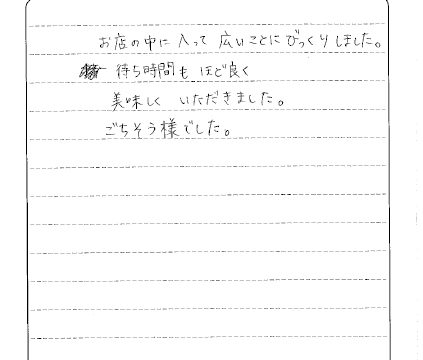 お店の中に入って広いことにびっくりしました。
待ち時間もほど良く
美味しくいただきました。
ごちそう様でした。